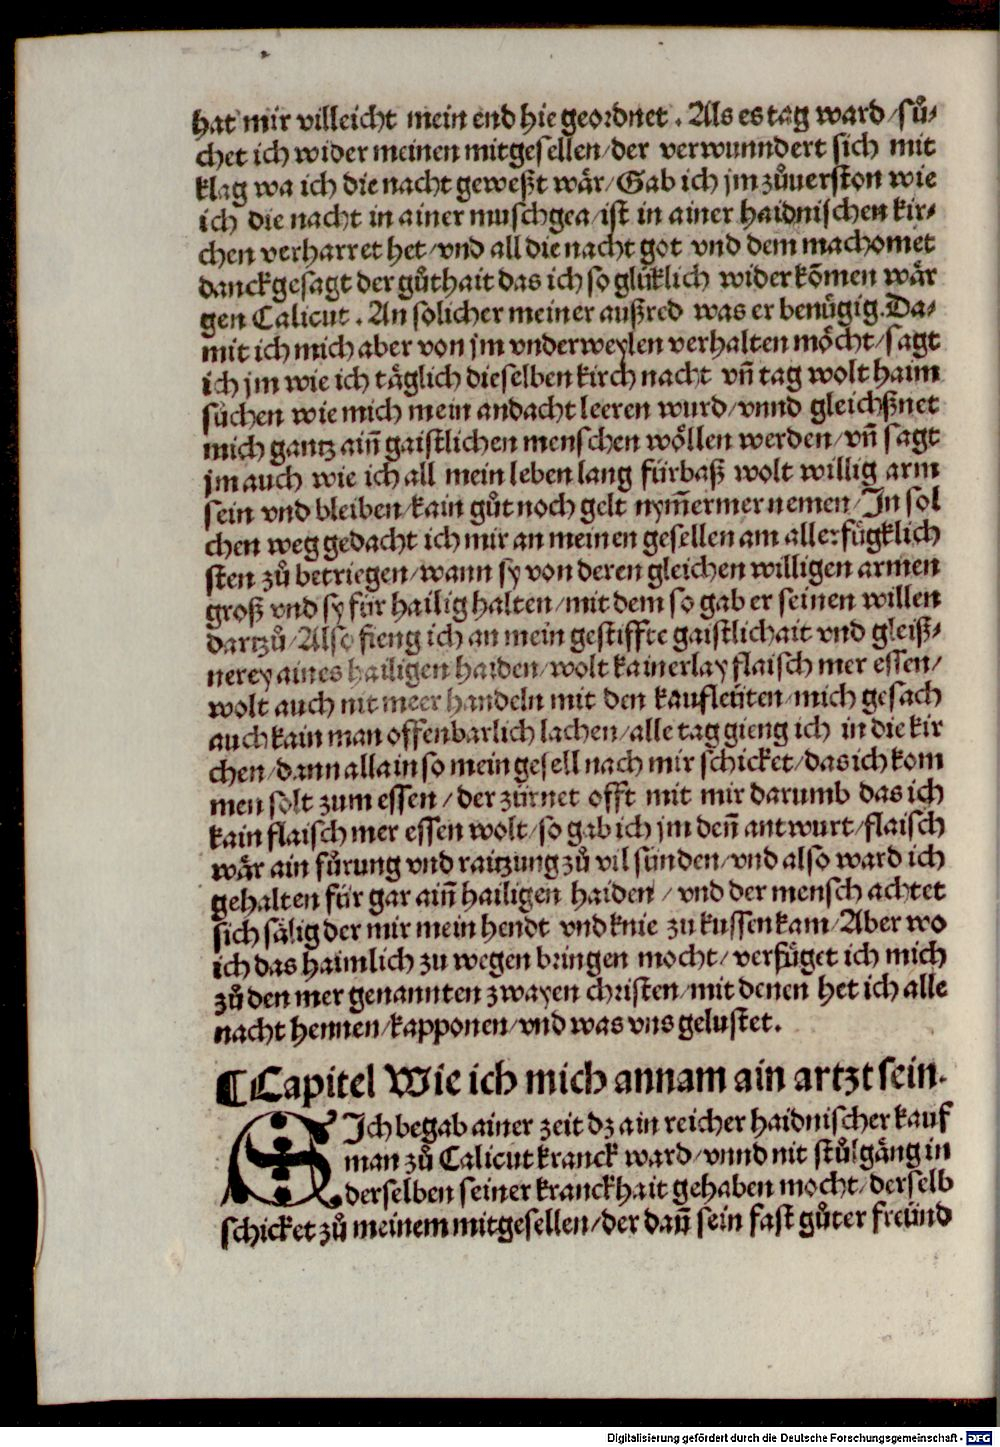 hat mir villeicht mein end hie geordnet . Als es tag ward / sůͤ-
chet ich wider meinen mitgesellen / der verwunndert sich mit
klag wa ich die nacht geweßt wär / Gab ich jm zůuerston wie
ich die nacht in ainer muschgea / ist in ainer haidnischen kir-
chen verharret het / vnd all die nacht got vnd dem machomet
danck gesagt der gůthait das ich so glüklich wider kōmen wär
gen Calicut . An solicher meiner außred was er benügig. Da-
mit ich mich aber von jm vnderweylen verhalten möcht / sagt
ich jm wie ich täglich dieselben kirch nacht vn̄ tag wolt haim
sůchen wie mich mein andacht leeren wurd / vnnd gleichßnet
mich gantz ain̄ gaistlichen menschen wöllen werden / vn̄ sagt
jm auch wie ich all mein leben lang fürbaß wolt willig arm
sein vnd bleiben / kain gůt noch gelt nym̄ermer nemen / In sol
chen weg gedacht ich mir an meinen gesellen am allerfügklich
sten zů betriegen / wann sy von deren gleichen willigen armen
groß vnd sy für hailig halten / mit dem so gab er seinen willen
dartzů / Also fieng ich an mein gestiffte gaistlichait vnd gleiß-
nerey aines hailigen haiden / wolt kainerlay flaisch mer essen /
wolt auch nit meer handeln mit den kaufleüten / mich gesach
auch kain man offenbarlich lachen / alle tag gieng ich in die kir
chen / dann allain so mein gesell nach mir schicket / das ich kom
men solt zum essen / der zürnet offt mit mir darumb das ich
kain flaisch mer essen wolt / so gab ich jm den̄ antwurt / flaisch
wär ain fůrung vnd raitzung zů vil sünden / vnd also ward ich
gehalten für gar ain̄ hailigen haiden / vnd der mensch achtet
sich sälig der mir mein hendt vnd knie zu kussen kam / Aber wo
ich das haimlich zu wegen bringen mocht / verfüget ich mich
zů den mer genannten zwayen christen / mit denen het ich alle
nacht hennen / kapponen / vnd was vns gelustet .
¶ Capitel Wie ich mich annam ain artzt sein.
SIch begab ainer zeit dz ain reicher haidnischer kauf
man zů Calicut kranck ward / vnnd nit stůlgäng in
derselben seiner kranckhait gehaben mocht / derselb
schicket zů meinem mitgesellen / der dan̄ sein fast gůter freünd
Digitalisierung gefördert durch die Deutsche Forschungsgemeinschaft - DFG